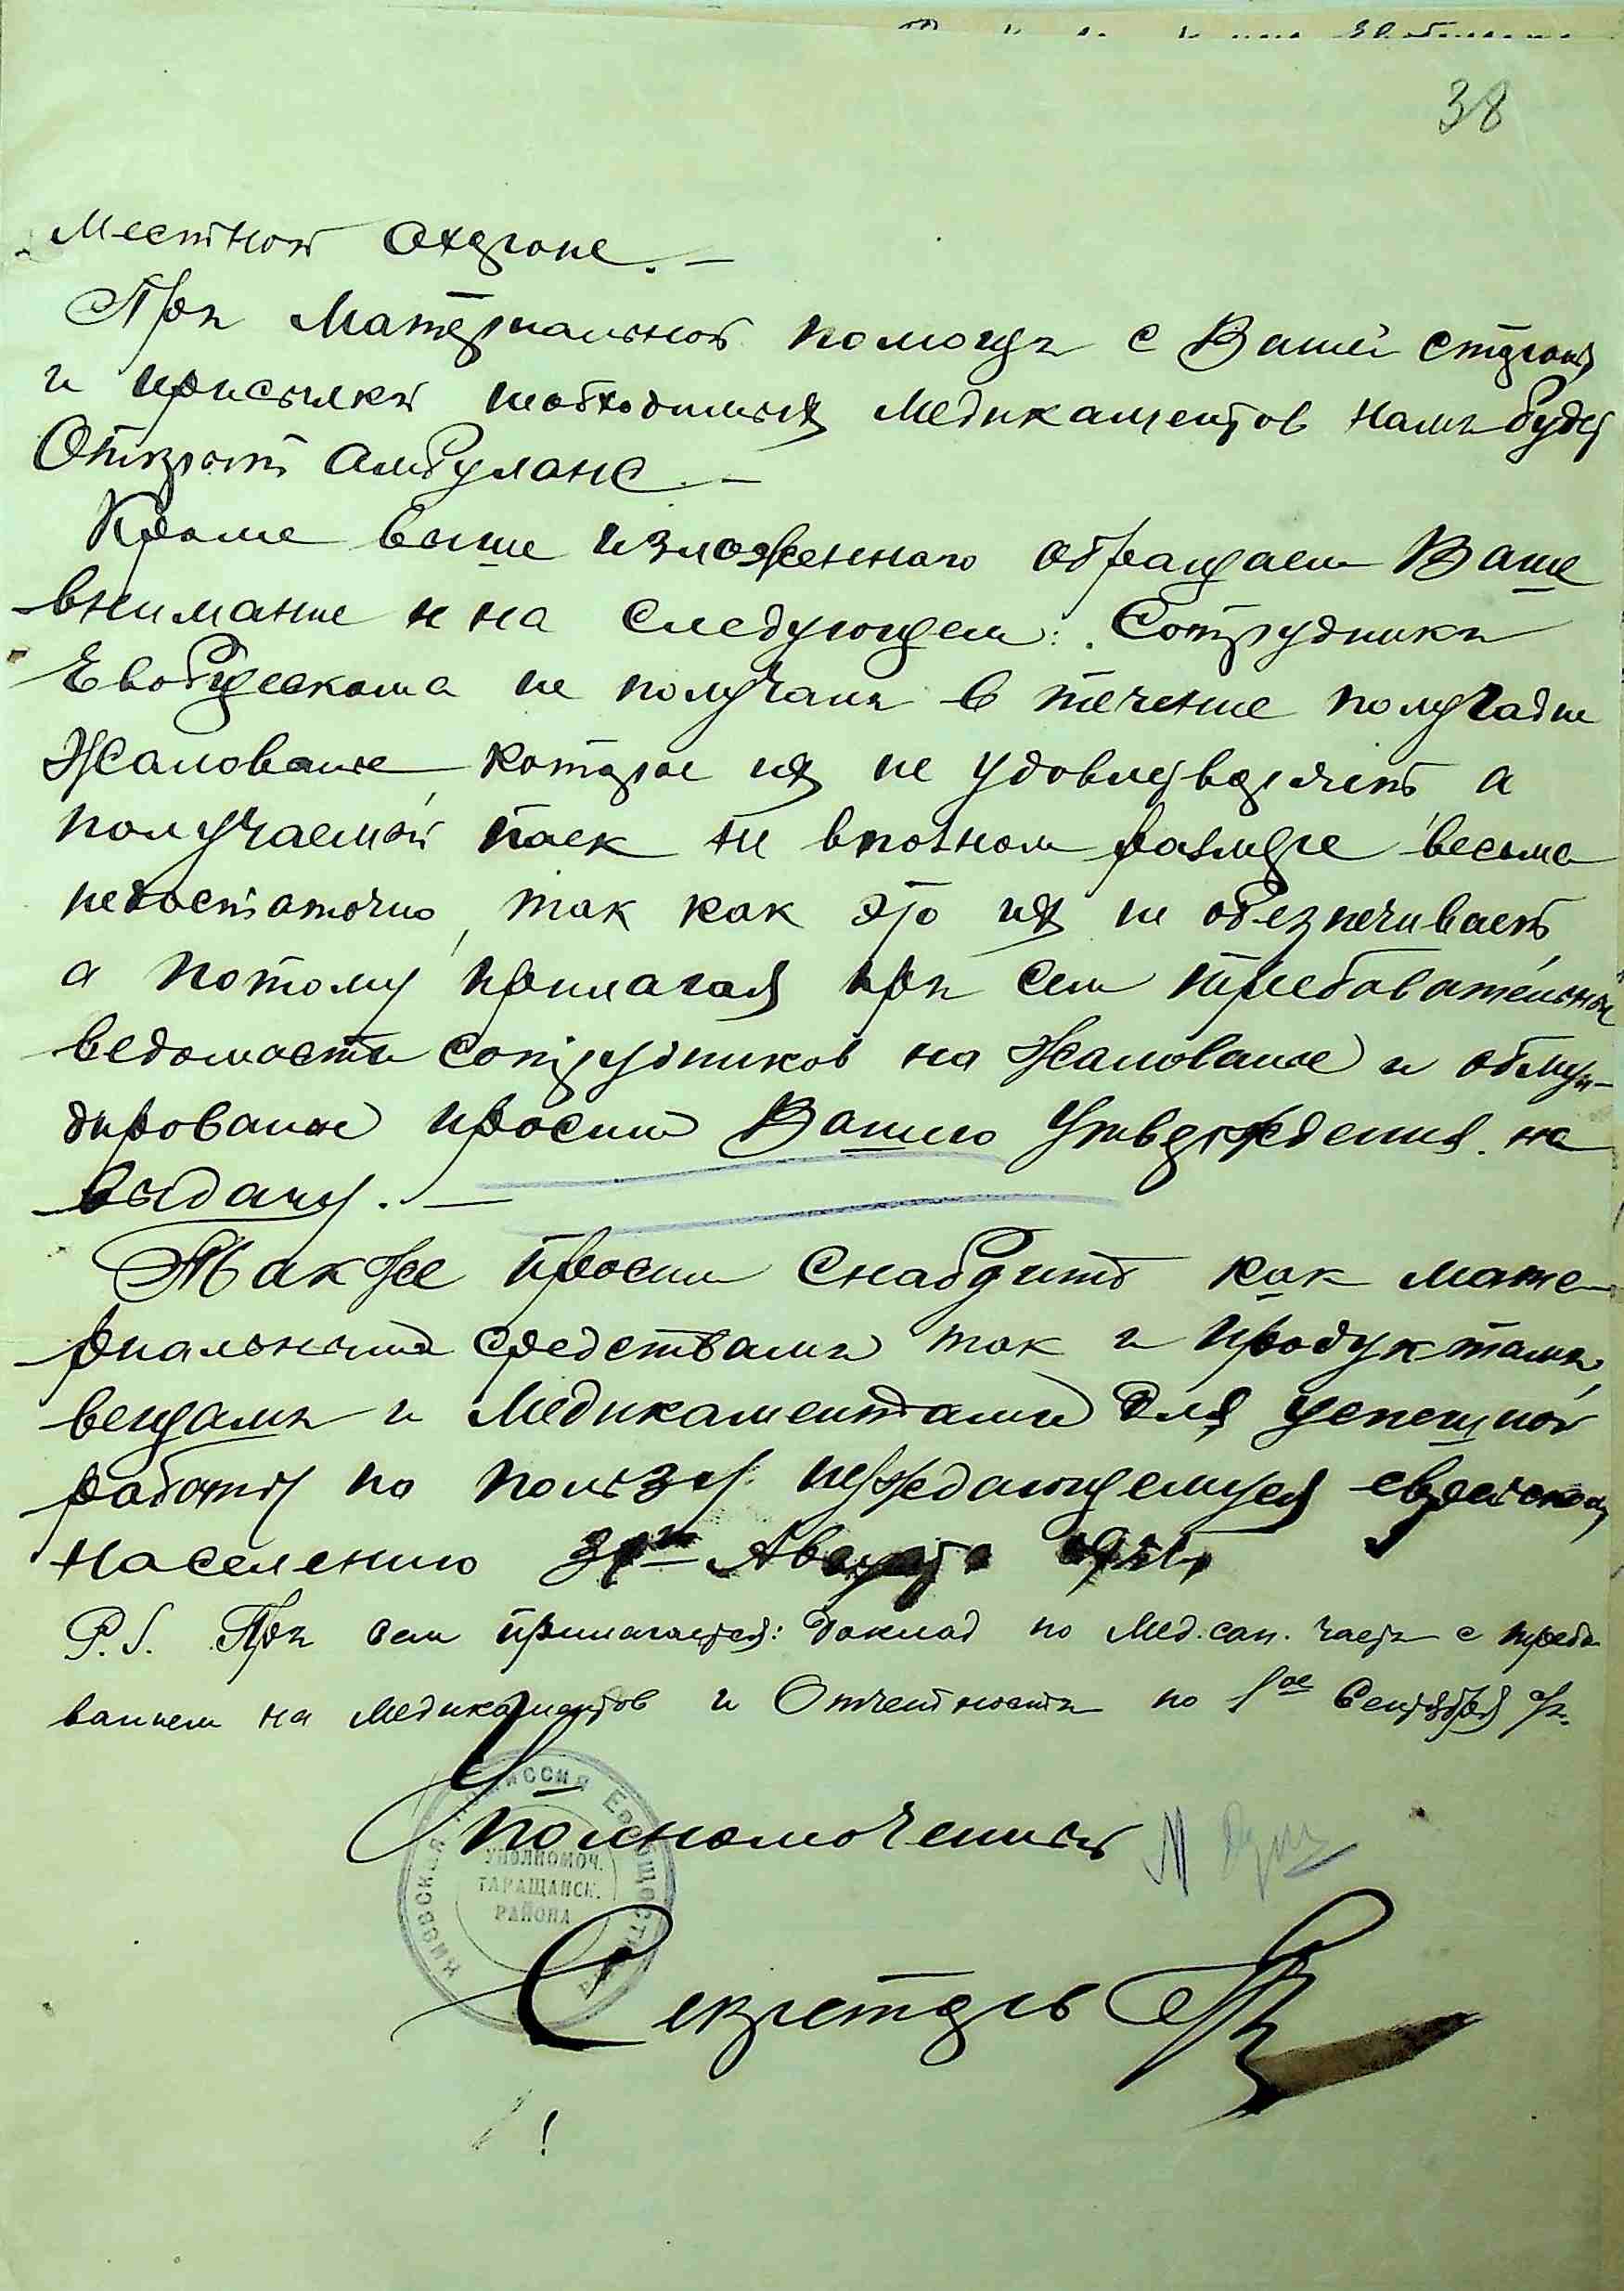 38
Местной Охране. —
При Материальной помощи с Вашей стороны
и присылкой необходимых Медикаментов нами будет
Открыт Амбуланс. —
Кроме выше изложенного обращаем Ваше
внимание и на следующем: Сотрудники
Евобщескома не получали в течение полугодия
Жалование, которое их не удовлетворяет а
получаемый паек не вполном размере весьма
недостаточно, так как это их не обезпечивает,
а потому прилагая при сем требовательные
ведомости сотрудников на Жалование и обмун-
дирование просим Вашего Утверждения на
выдачу. —
Также просим снабдить как мате-
риальными средствами так и продуктами,
вещами и Медикаментами для успешной
работы по пользу нуждающемуся еврейскому
населению 31го Августа 1921г
P.S. При сем прилагается: Доклад по Мед.сан. части с требо
ванием на Медикаментов и Отчетности по 1ое Сентября с/г.
Уполномоченный
КИЕВСКАЯ КОМИССИЯ ЕВОБЩЕСТКОМА
УПОЛНОМОЧ.
ТАРАЩАНСК.
РАЙОНА
Секретарь